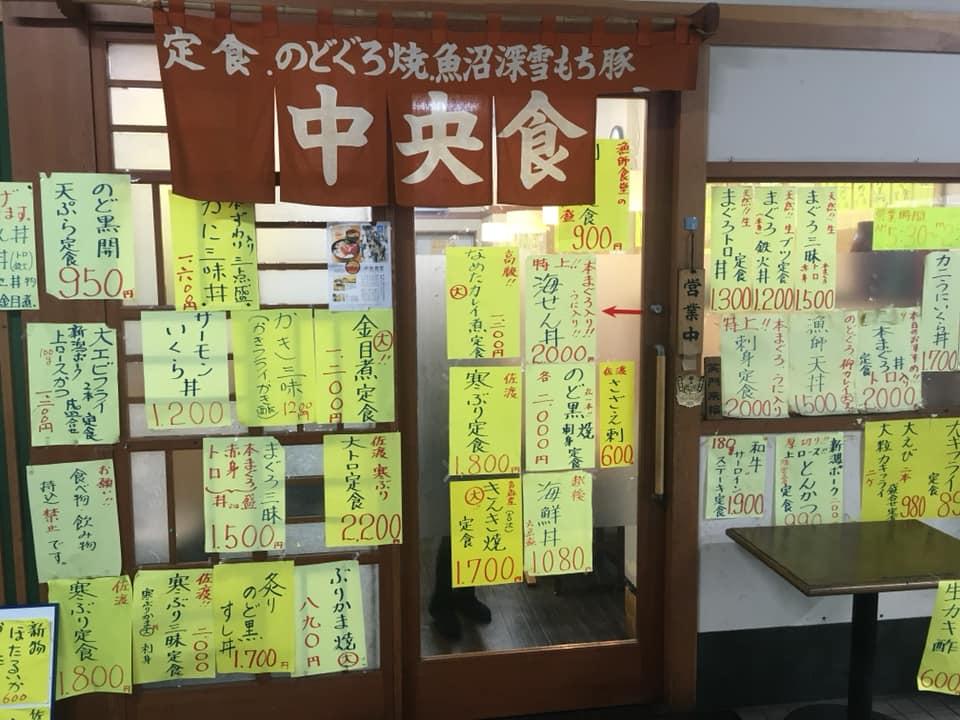 定食.のどぐろ焼.魚沼深雪もち豚
中央食
漁師食堂の
定食
900円
のど黒開
天ぷら定食
950円
かに三味丼
大エビフライ
2本 定食
新潟ポーク
上ロースかつ
サーモン
いくら丼
1.200円
かき三味
(かきフライかき酢)
金目煮定食
大
一.二〇〇円
お願い!!
食べ物 飲み物
持込 禁止です。
まぐろ三昧
本まぐろ盛
赤身
トロ
丼
1.500円
佐渡 寒ぶり
大トロ定食
2.200円
佐渡
寒ぶり定食
1.800円
佐渡!!
寒ぶり三昧定食
2.000
刺身
炙り
のど黒
すし丼
1.700円
ぶりかま焼
大
八九〇円
新物
ほたるいか
600
高級!!
なめたカレイ煮定食
大
特上!!本まぐろ入り!!
うに入り!!
海せん丼
2000円
佐渡
寒ぶり定食
1.800円
のど黒焼
刺身
定食
各二〇〇〇円
佐渡
さざえ刺
600円
きんき焼
大
定食
1.700円
越後
海鮮丼
1080円
営業中
天然!!生
まぐろトロ
定食
丼
1300
天然!!生
まぐろブツ定食
鉄火丼
1.200
天然!!生
まぐろ三昧
1500
営業時間
カニうにいくら丼
1700
特上!!本まぐろ、うに入り
お刺身定食
2000
漁師天丼
1500
本日のおすすめ!!
本まぐろ丼
トロ入り
定食
2000円
180g
和牛
サーロイン
ステーキ定食
1.900
新潟ポーク
厚切り
上ロースとんかつ
定食
990
大えび二本
盛合せ定食
大粒カキフライ
二ケ
980円
大カキフライ
定食
生カキ酢
600